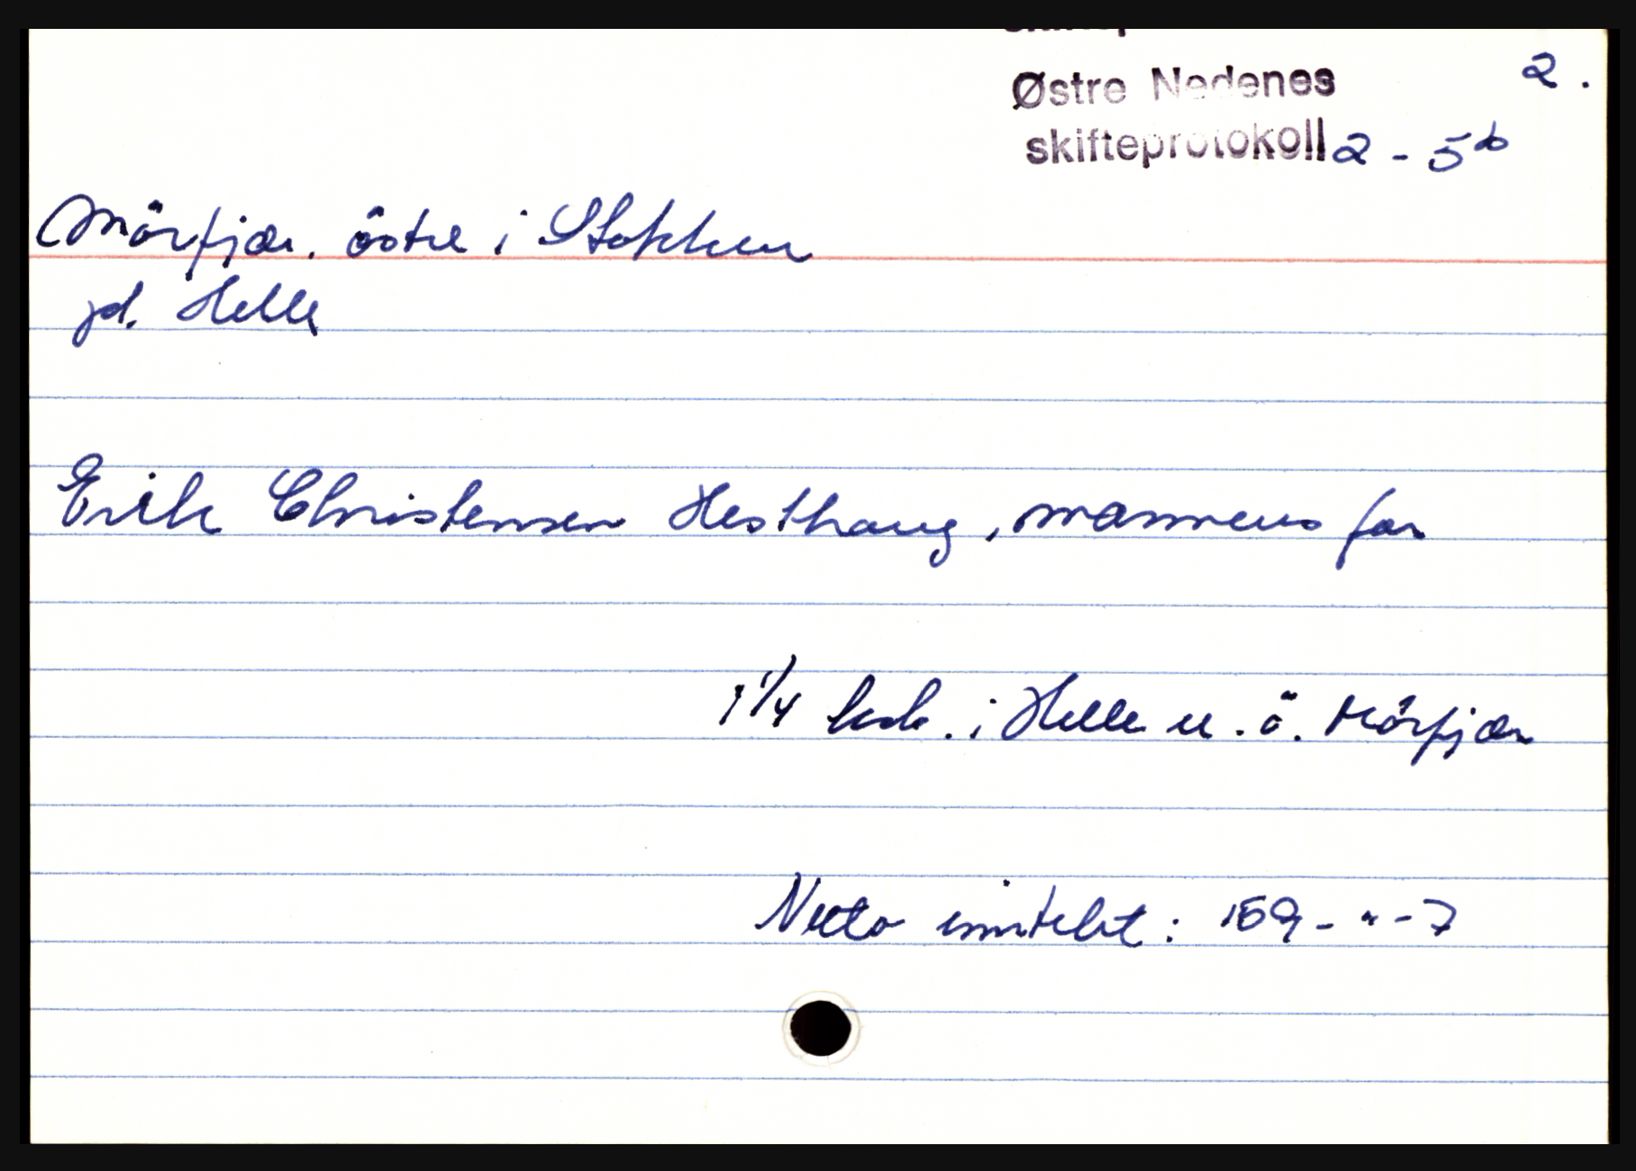 2.
Østre Nedenes
skifteprotokoll 2 - 5b
Mörfjær, östre i Stokken
gd. Helle
Erik Christensen Hesthaug, mannens far
1 1/4 hud. i Helle u. ö. Mörfjær
Netto inntekt: 159 - " - 7